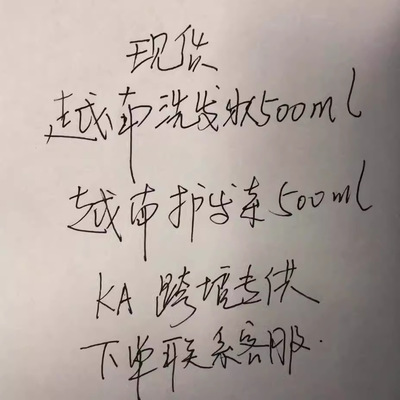 现货
越南洗发水500ml
越南护发素500ml
KA 跨境专供
下单联系客服.